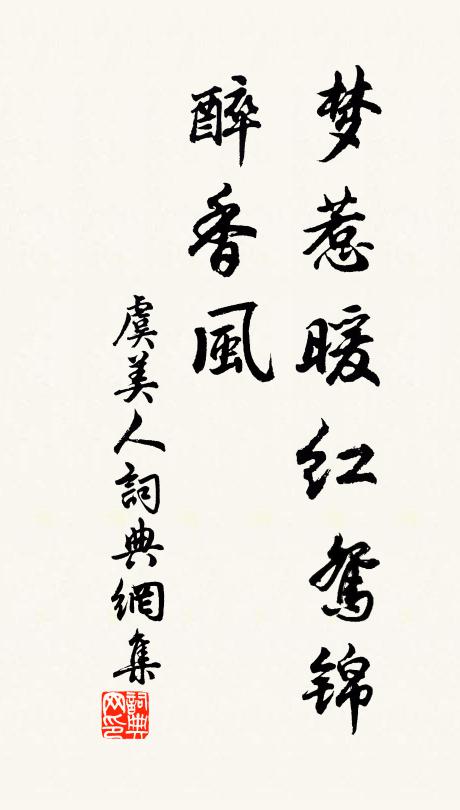 梦惹暖红鸳锦
醉香風
虞美人詞典網集
詞典网印